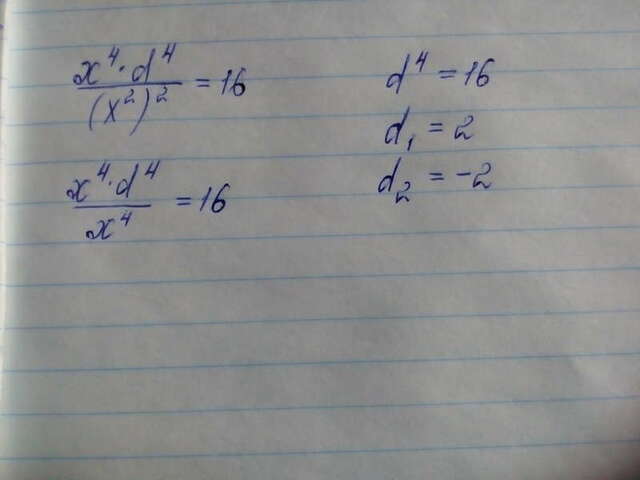 x⁴·d⁴/(x²)² = 16
x⁴·d⁴/x⁴ = 16
d⁴ = 16
d₁ = 2
d₂ = -2